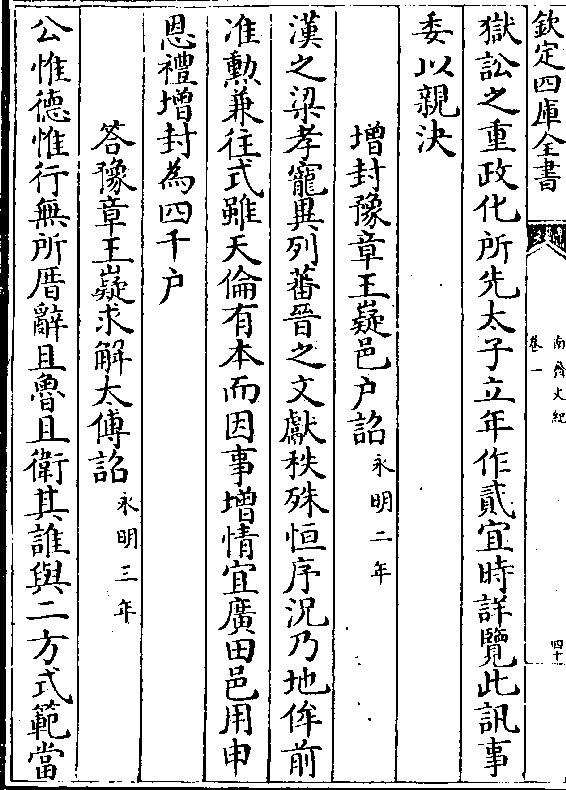 欽定四庫全書
南齊文紀
卷一
四十
獄訟之重政化所先太子立年作貳宜時詳覽此訊事
委以親決
增封豫章王嶷邑户詔永明二年
漢之梁孝寵異列蕃晉之文獻秩殊恒序況乃地侔前
准勲兼往式雖天倫有本而因事增情宜廣田邑用申
恩禮增封為四千户
答豫章王嶷求解太傅詔永明三年
公惟德惟行無所厝辭且魯且衛其誰與二方式範當